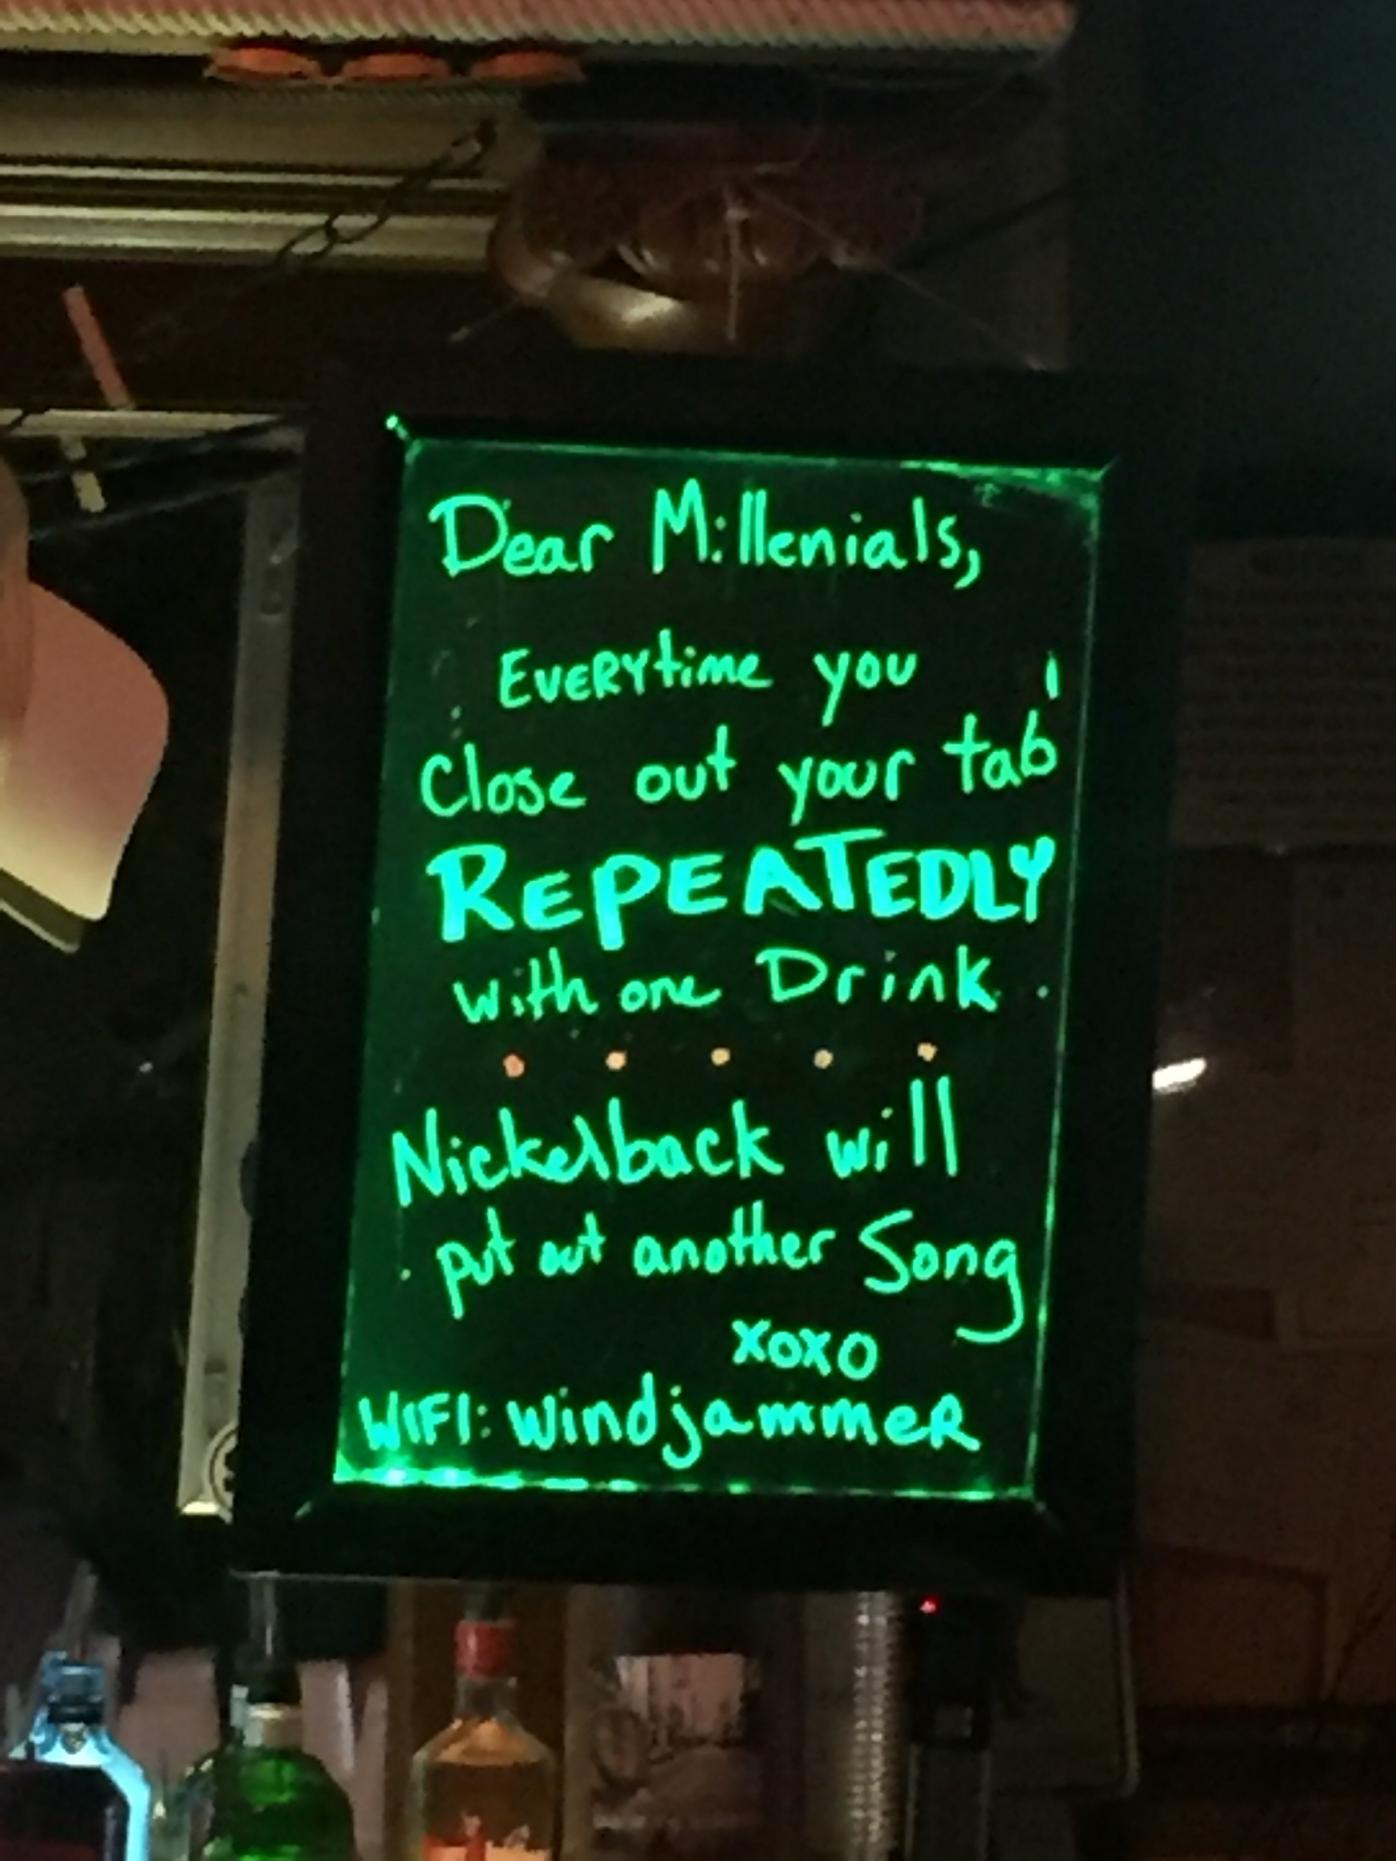 Dear Millenials,
EVERYtime you
Close out your tab
REPEATEDLY
with one Drink
Nickelback will
put out another Song
xoxo
WIFI: windjammeR